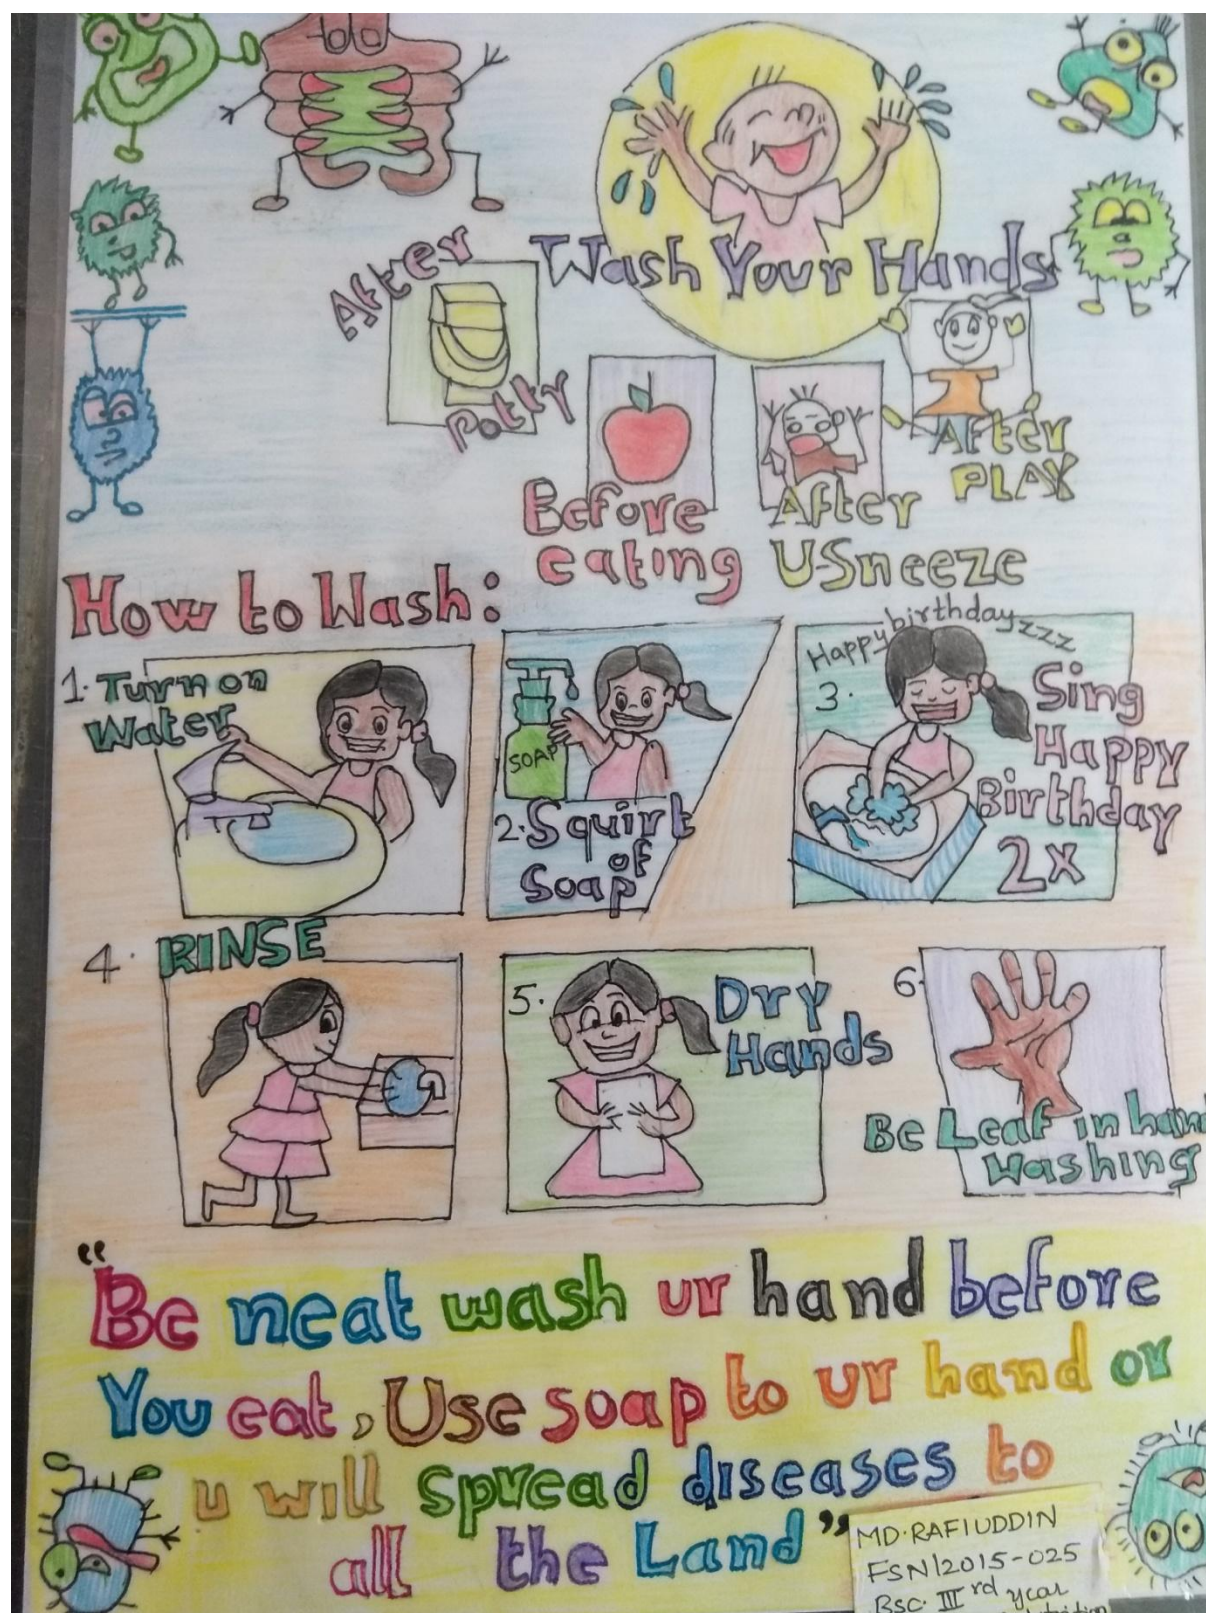 Wash Your Hands
After
Potty
Before
eating
After
U-Sneeze
After
PLAY
How to Wash:
1. Turn on
Water
SOAP
2. Squirt
of
Soap
Happy birthdayzzz
3.
Sing
Happy
Birthday
2x
4. RINSE
5. Dry
Hands
6.
Be Leaf in
washing
"Be neat wash ur hand before
You eat, Use soap to ur hand or
u will spread diseases to
all the Land"
MD. RAFIUDDIN
FSN/2015-025
BSC. III rd year